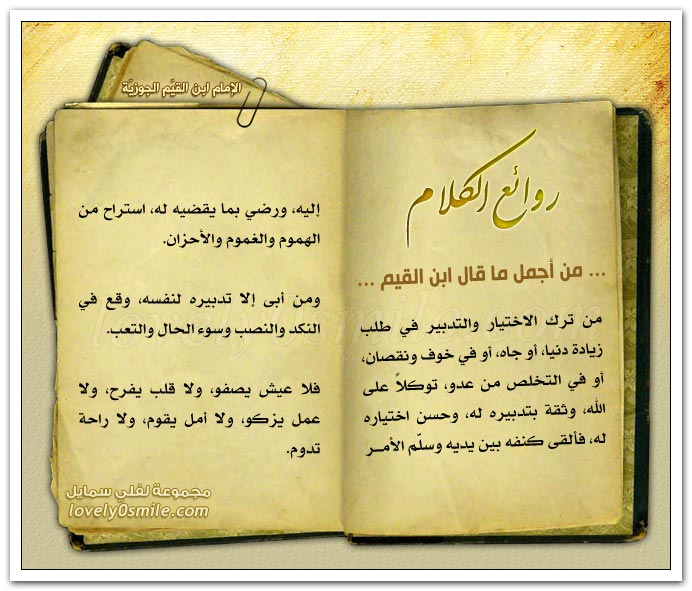 الإمام ابن القيَّم الجوزيَّة
روائع الكلام
... من أجمل ما قال ابن القيم ...
من ترك الاختيار والتدبير في طلب
زيادة دنيا، أو جاه، أو في خوف ونقصان،
أو في التخلص من عدو، توكلاً على
الله، وثقة بتدبيره له، وحسن اختياره
له، فألقى كنفه بين يديه وسلّم الأمـر
إليه، ورضي بما يقضيه له، استراح من
الهموم والغموم والأحزان.
ومن أبى إلا تدبيره لنفسه، وقع في
النكد والنصب وسوء الحال والتعب.
فلا عيش يصفو، ولا قلب يفرح، ولا
عمل يزكو، ولا أمل يقوم، ولا راحة
تدوم.
مجموعة لفلي سمايل
lovely0smile.com
lovely0smile.com